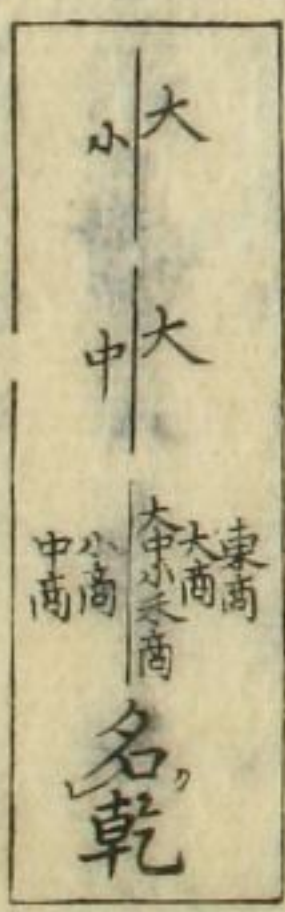 大
小
大
中
東商
大商
大中小商
小商
中商
名クレ乾